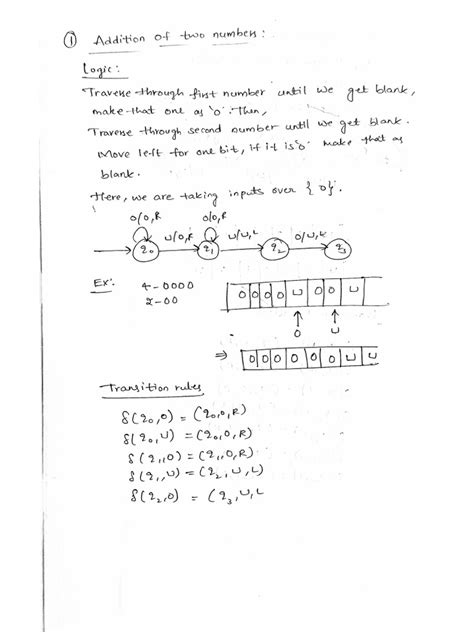 ① Addition of two numbers:
Logic:
Traverse through first number until we get blank,
make that one as '0'. Then,
Traverse through second number until we get blank.
Move left for one bit, if it is '0' make that as
blank.
Here, we are taking inputs over {0}.
0/0,R 0/0,R
⊔/0,R ⊔/⊔,L 0/⊔,L
q0 q1 q2 q3
Ex: 4-0000
2-00
0 0 0 0 ⊔ 0 0 ⊔
↑ ↑
0 ⊔
⇒ 0 0 0 0 0 0 ⊔ ⊔
Transition rules
δ(q0,0) = (q0,0,R)
δ(q0,⊔) = (q0,0,R)
δ(q1,0) = (q1,0,R)
δ(q1,⊔) = (q2,⊔,L)
δ(q2,0) = (q3,⊔,L